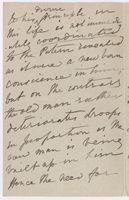 divine
to his principle in
this life is not immedi
ately coordinated
to the Pattern revealed
as it were a new born
conscience in him,
but on the contrary
the old man rather
deteriorates droops
in proportion as the
new man is being
built up in him
Hence the need for